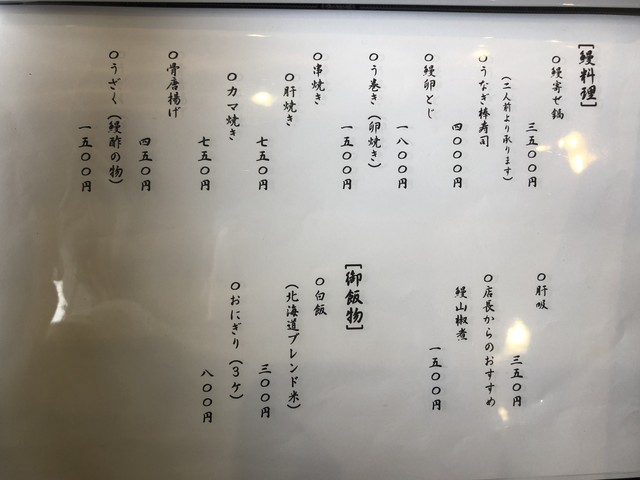 [鰻料理]
○鰻寄せ鍋
三五〇〇円
(二人前より承ります)
○うなぎ棒寿司
四〇〇〇円
○鰻卵とじ
一八〇〇円
○う巻き(卵焼き)
一五〇〇円
○串焼き
○肝焼き
七五〇円
○カマ焼き
七五〇円
○骨唐揚げ
四五〇円
○うざく(鰻酢の物)
一五〇〇円
○肝吸
三五〇円
○店長からのおすすめ
鰻山椒煮
一五〇〇円
[御飯物]
○白飯
(北海道ブレンド米)
三〇〇円
○おにぎり(3ケ)
八〇〇円